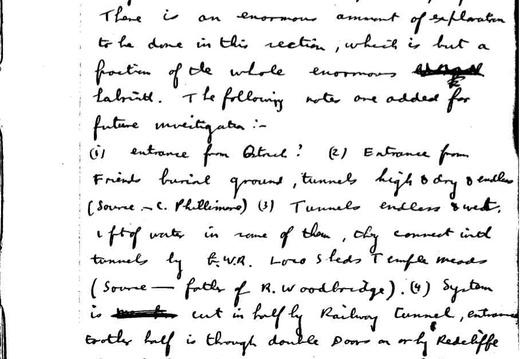 There is an enormous amount of exploration
to be done in this section, which is but a
fraction of the whole enormous
labrinth. The following notes are added for
future investigators :-
(1) entrance from Ostrich? (2) Entrance from
Friends burial ground, tunnels high & dry & endless
(Source - C. Phillimore) (3) Tunnels endless & wet,
1 ft of water in some of them, they connect with
tunnels by G.W.R. Loco Sheds Temple meads
(Source - father of R. Woodbridge). (4) System
is cut in half by Railway tunnel, entrance
to other half is though double Doors on or by Redcliffe